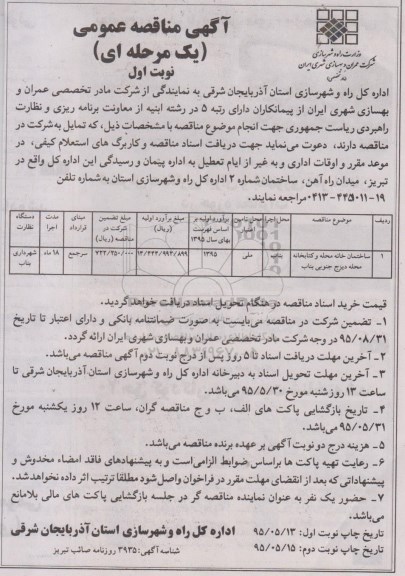 آگهی مناقصه عمومی
(یک مرحله ای)
نوبت اول
وزارت راه و شهرسازی
شرکت عمران و بهسازی شهری ایران
اداره کل راه و شهرسازی استان آذربایجان شرقی به نمایندگی از شرکت مادر تخصصی عمران و
بهسازی شهری ایران از پیمانکاران دارای رتبه ۵ در رشته ابنیه از معاونت برنامه ریزی و نظارت
راهبردی ریاست جمهوری جهت انجام موضوع مناقصه با مشخصات ذیل، که تمایل به شرکت در
مناقصه دارند، دعوت می‌نماید جهت دریافت اسناد مناقصه و کاربرگ های استعلام کیفی، در
موعد مقرر و اوقات اداری و به غیر از ایام تعطیل به اداره پیمان و رسیدگی این اداره کل واقع در
تبریز، میدان راه آهن، ساختمان شماره ۲ اداره کل راه و شهرسازی استان به شماره تلفن
۱۹-۴۴۵۰۱۱-۰۴۱۳ مراجعه نمایند.
ردیف | موضوع مناقصه | محل اجرا | محل تامین اعتبار | برآورد اولیه بر اساس فهرست بهای سال ۱۳۹۵ | مبلغ برآورد اولیه (ریال) | مبلغ تضمین شرکت در مناقصه (ریال) | مبنای قرارداد | مدت اجرا | دستگاه نظارت
۱ | ساختمان خانه محله و کتابخانه محله دیزج جنوبی بناب | ملی | ۱۳۹۵ | ۱۴/۴۴۴/۹۹۴/۸۹۹ | ۷۲۲/۲۵۰/۰۰۰ | سرجمع | ۱۸ ماه | شهرداری بناب
قیمت خرید اسناد مناقصه در هنگام تحویل اسناد دریافت خواهد گردید.
۱- تضمین شرکت در مناقصه می‌بایست به صورت ضمانتنامه بانکی و دارای اعتبار تا تاریخ
۹۵/۰۸/۳۱ در وجه شرکت مادر تخصصی عمران و بهسازی شهری ایران ارائه گردد.
۲- آخرین مهلت دریافت اسناد تا ۵ روز پس از درج نوبت دوم آگهی مناقصه می‌باشد.
۳- آخرین مهلت تحویل اسناد به دبیرخانه اداره کل راه و شهرسازی استان آذربایجان شرقی تا
ساعت ۱۳ روز شنبه مورخ ۹۵/۵/۳۰ می‌باشد.
۴- تاریخ بازگشایی پاکت های الف، ب و ج مناقصه گران، ساعت ۱۲ روز یکشنبه مورخ
۹۵/۰۵/۳۱ می‌باشد.
۵- هزینه درج دو نوبت آگهی بر عهده برنده مناقصه می‌باشد.
۶- رعایت تهیه پاکت ها براساس ضوابط الزامی است و به پیشنهادهای فاقد امضاء مخدوش و
پیشنهاداتی که بعد از انقضای مهلت مقرر در فراخوان واصل شود مطلقا ترتیب اثر داده نخواهد شد.
۷- حضور یک نفر به عنوان نماینده مناقصه گر در جلسه بازگشایی پاکت های مالی بلامانع
می‌باشد.
تاریخ چاپ نوبت اول: ۹۵/۰۵/۱۳
تاریخ چاپ نوبت دوم: ۹۵/۰۵/۱۵
اداره کل راه و شهرسازی استان آذربایجان شرقی
شناسه آگهی: ۳۹۳۵ روزنامه صائب تبریز